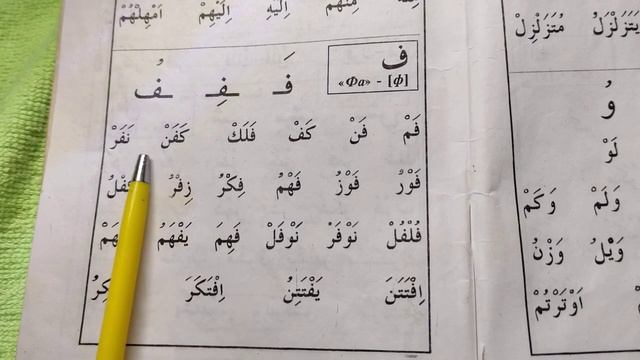 مِنْهُمْ اِلَيْهِ اِلَيْهِمْ اَمْهِلْهُمْ
ف
«Фа» - [ф]
فَ ـفِـ ـفُ
فَمْ فَنْ كَفْ فَلَكْ كَفَنْ نَفَرْ
فَوْرُ فَوْزُ فَهْمُ فِكْرُ زِفْرُ
فُلْفُلْ نَوْفَرْ نَوْفَلْ فَهِمَ يَفْهَمُ
اِفْتَتَنَ يَفْتَتِنُ اِفْتَكَرَ
يَتَزَلْزَلُ مُتَزَلْزِلْ
وُ
لَوْ
وَلَمْ وَكَمْ
وَيْلُ وَزْنُ
اَوْتَرْتُمْ